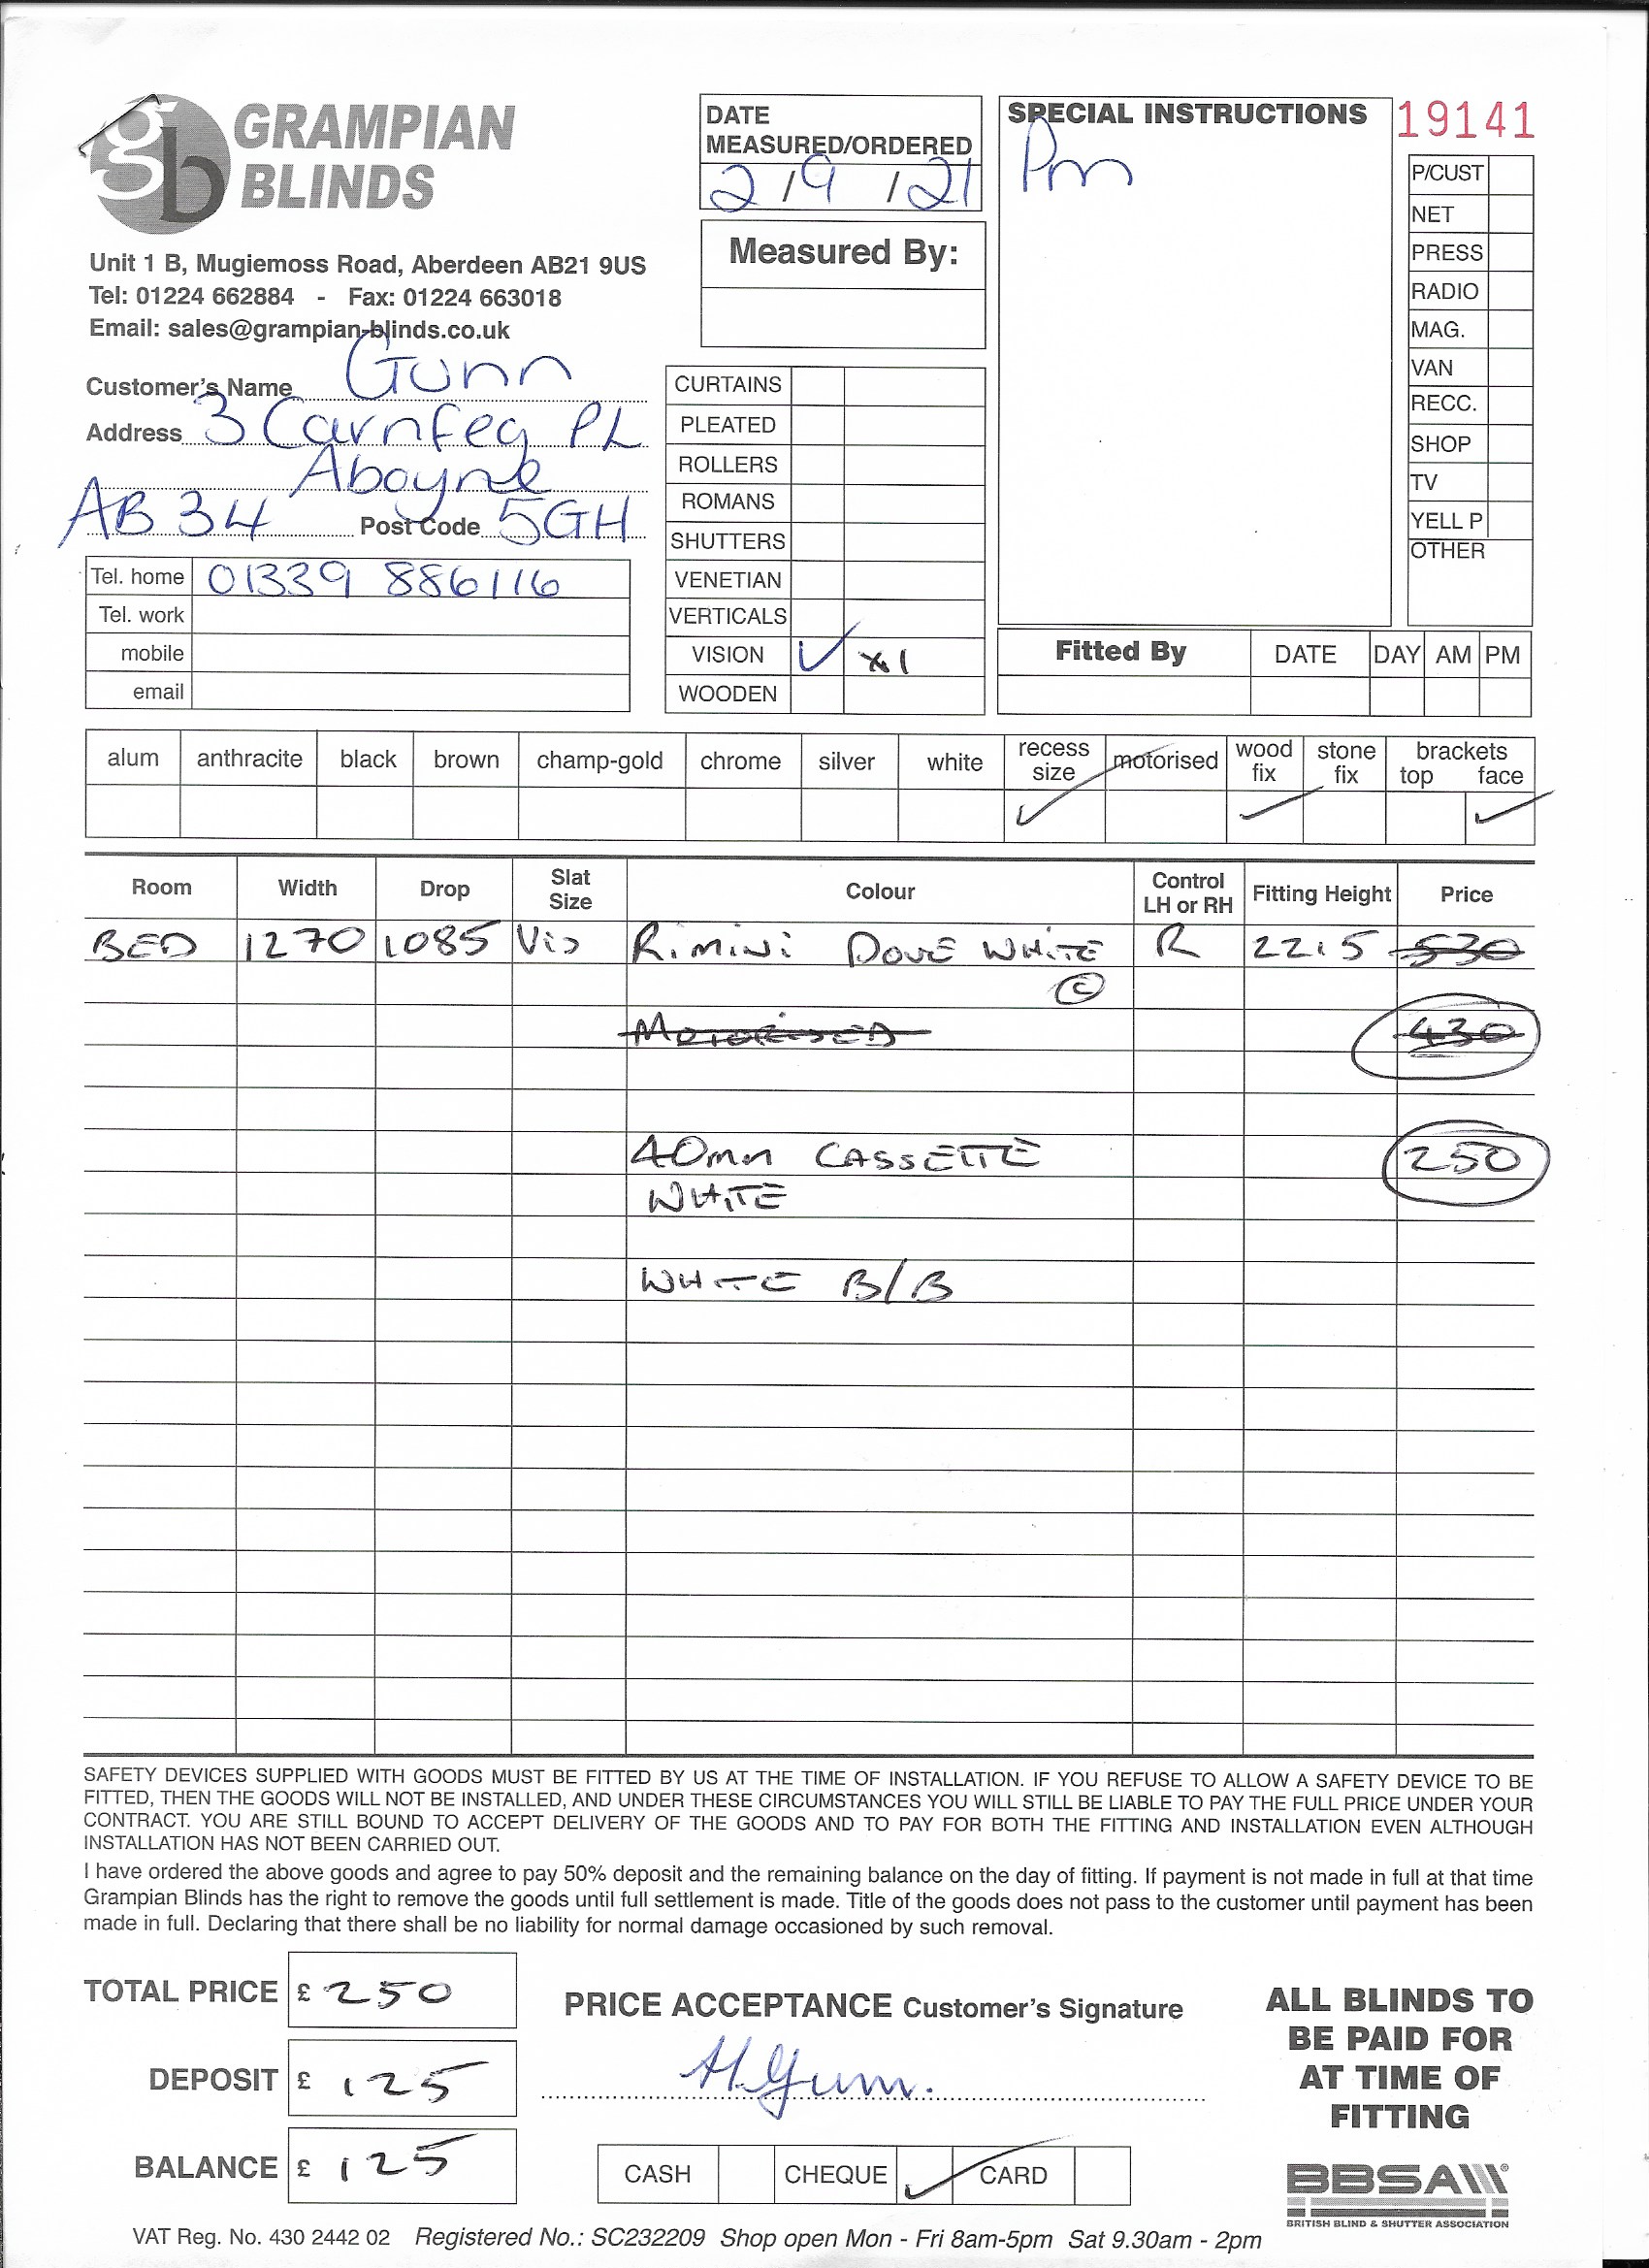 gb GRAMPIAN BLINDS
Unit 1 B, Mugiemoss Road, Aberdeen AB21 9US
Tel: 01224 662884 - Fax: 01224 663018
Email: sales@grampian-blinds.co.uk
Customer's Name Gunn
Address 3 Carnfeg PL
Aboyne
AB 34 Post Code 5GH
Tel. home 01339 886116
Tel. work
mobile
email
DATE
MEASURED/ORDERED
2/9/21
Measured By:
CURTAINS
PLEATED
ROLLERS
ROMANS
SHUTTERS
VENETIAN
VERTICALS
VISION ✓ x1
WOODEN
SPECIAL INSTRUCTIONS
Pm
19141
P/CUST
NET
PRESS
RADIO
MAG.
VAN
RECC.
SHOP
TV
YELL P
OTHER
Fitted By DATE DAY AM PM
alum anthracite black brown champ-gold chrome silver white recess size motorised wood fix stone fix brackets top face
✓ ✓ ✓
Room Width Drop Slat Size Colour Control LH or RH Fitting Height Price
BED 1270 1085 Vis Rimini DOVE WHITE R 2215 530
©
MOTORISED 430
40mm CASSETTE 250
WHITE
WHITE B/B
SAFETY DEVICES SUPPLIED WITH GOODS MUST BE FITTED BY US AT THE TIME OF INSTALLATION. IF YOU REFUSE TO ALLOW A SAFETY DEVICE TO BE
FITTED, THEN THE GOODS WILL NOT BE INSTALLED, AND UNDER THESE CIRCUMSTANCES YOU WILL STILL BE LIABLE TO PAY THE FULL PRICE UNDER YOUR
CONTRACT. YOU ARE STILL BOUND TO ACCEPT DELIVERY OF THE GOODS AND TO PAY FOR BOTH THE FITTING AND INSTALLATION EVEN ALTHOUGH
INSTALLATION HAS NOT BEEN CARRIED OUT.
I have ordered the above goods and agree to pay 50% deposit and the remaining balance on the day of fitting. If payment is not made in full at that time
Grampian Blinds has the right to remove the goods until full settlement is made. Title of the goods does not pass to the customer until payment has been
made in full. Declaring that there shall be no liability for normal damage occasioned by such removal.
TOTAL PRICE £ 250
DEPOSIT £ 125
BALANCE £ 125
PRICE ACCEPTANCE Customer's Signature
H. Gunn.
CASH CHEQUE ✓ CARD
ALL BLINDS TO
BE PAID FOR
AT TIME OF
FITTING
BBSA ®
BRITISH BLIND & SHUTTER ASSOCIATION
VAT Reg. No. 430 2442 02 Registered No.: SC232209 Shop open Mon - Fri 8am-5pm Sat 9.30am - 2pm